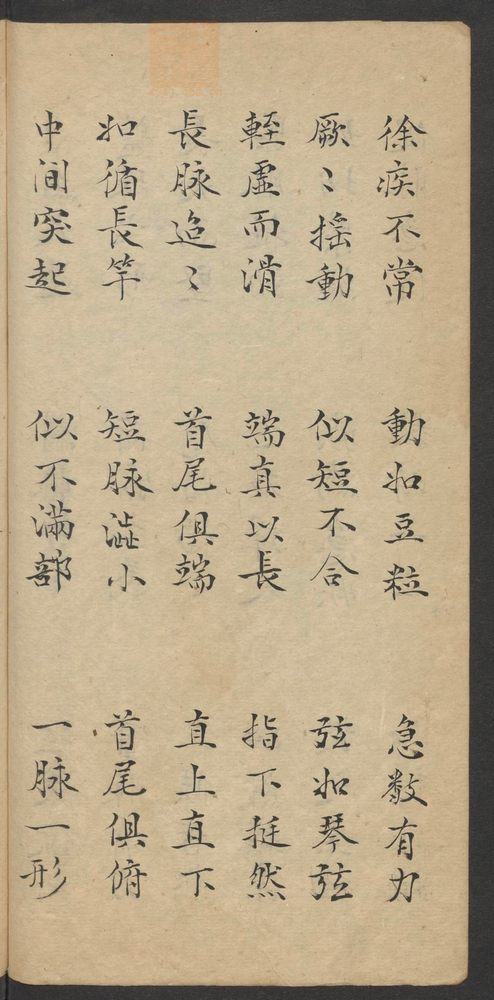 徐疾不常 動如豆粒 急数有力
厥〻搖動 似短不合 弦如琴弦
輕虛而滑 端真以長 指下挺然
長脉迢〻 首尾俱端 直上直下
如循長竿 短脉澁小 首尾俱俯
中间突起 似不滿部 一脉一形